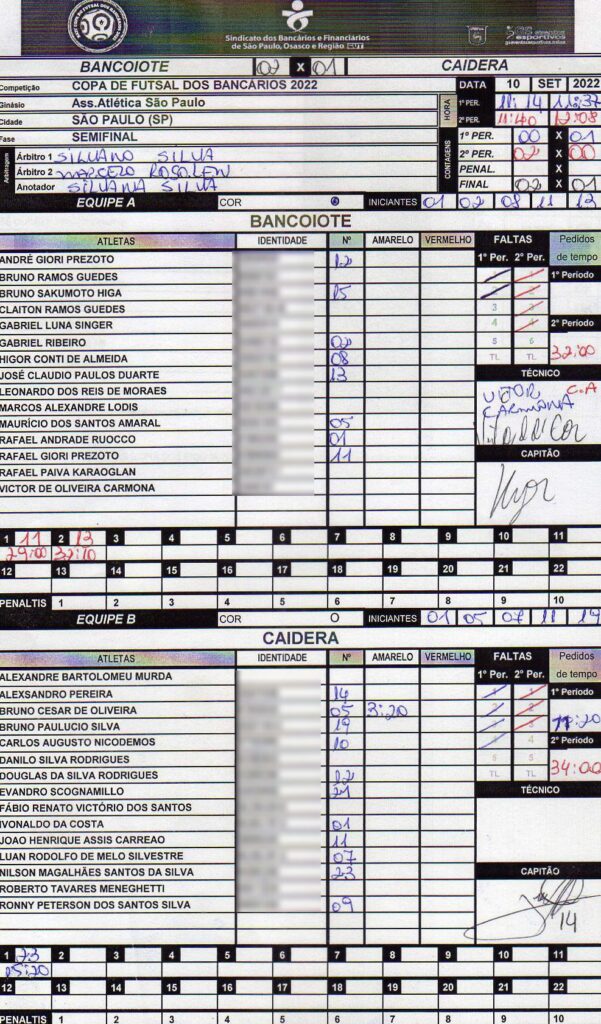 Sindicato dos Bancários e Financiários
de São Paulo, Osasco e Região CUT
BANCOIOTE 02 X 01 CAIDERA
Competição COPA DE FUTSAL DOS BANCÁRIOS 2022 DATA 10 SET 2022
Ginásio Ass.Atlética São Paulo HORA 1º PER. 11:14 11:37
Cidade SÃO PAULO (SP) 2º PER. 11:40 12:08
Fase SEMIFINAL CONTAGENS 1º PER. 00 X 01
Arbitragem Árbitro 1 SILVANO SILVA 2º PER. 02 X 00
Árbitro 2 MARCELO ROSOLEN PENAL. X
Anotador SILVANA SILVA FINAL 02 X 01
EQUIPE A COR INICIANTES 01 02 08 11 13
BANCOIOTE
ATLETAS IDENTIDADE Nº AMARELO VERMELHO FALTAS Pedidos de tempo
1º Per. 2º Per.
ANDRÉ GIORI PREZOTO 12
BRUNO RAMOS GUEDES 1º Período
BRUNO SAKUMOTO HIGA 15
CLAITON RAMOS GUEDES 3
GABRIEL LUNA SINGER 4 2º Período
GABRIEL RIBEIRO 02 5 6
HIGOR CONTI DE ALMEIDA 08 TL TL 32:00
JOSÉ CLAUDIO PAULOS DUARTE 13 TÉCNICO
LEONARDO DOS REIS DE MORAES VITOR C.A
MARCOS ALEXANDRE LODIS CARMONA
MAURÍCIO DOS SANTOS AMARAL 05
RAFAEL ANDRADE RUOCCO 01
RAFAEL GIORI PREZOTO 11 CAPITÃO
RAFAEL PAIVA KARAOGLAN
VICTOR DE OLIVEIRA CARMONA
1 11 2 13 3 4 5 6 7 8 9 10 11
29:00 32:10
12 13 14 15 16 17 18 19 20 21 22
PENALTIS 1 2 3 4 5 6 7 8 9 10
EQUIPE B COR INICIANTES 01 05 07 11 14
CAIDERA
ATLETAS IDENTIDADE Nº AMARELO VERMELHO FALTAS Pedidos de tempo
1º Per. 2º Per.
ALEXANDRE BARTOLOMEU MURDA
ALEXSANDRO PEREIRA 14 1º Período
BRUNO CESAR DE OLIVEIRA 05 3:20
BRUNO PAULUCIO SILVA 19
CARLOS AUGUSTO NICODEMOS 10 4 2º Período
DANILO SILVA RODRIGUES 5 5
DOUGLAS DA SILVA RODRIGUES 12 TL TL 34:00
EVANDRO SCOGNAMILLO 21 TÉCNICO
FÁBIO RENATO VICTÓRIO DOS SANTOS
IVONALDO DA COSTA 01
JOAO HENRIQUE ASSIS CARREAO 11
LUAN RODOLFO DE MELO SILVESTRE 07
NILSON MAGALHÃES SANTOS DA SILVA 23 CAPITÃO
ROBERTO TAVARES MENEGHETTI
RONNY PETERSON DOS SANTOS SILVA 09 14
1 23 2 3 4 5 6 7 8 9 10 11
15:20
12 13 14 15 16 17 18 19 20 21 22
PENALTIS 1 2 3 4 5 6 7 8 9 10